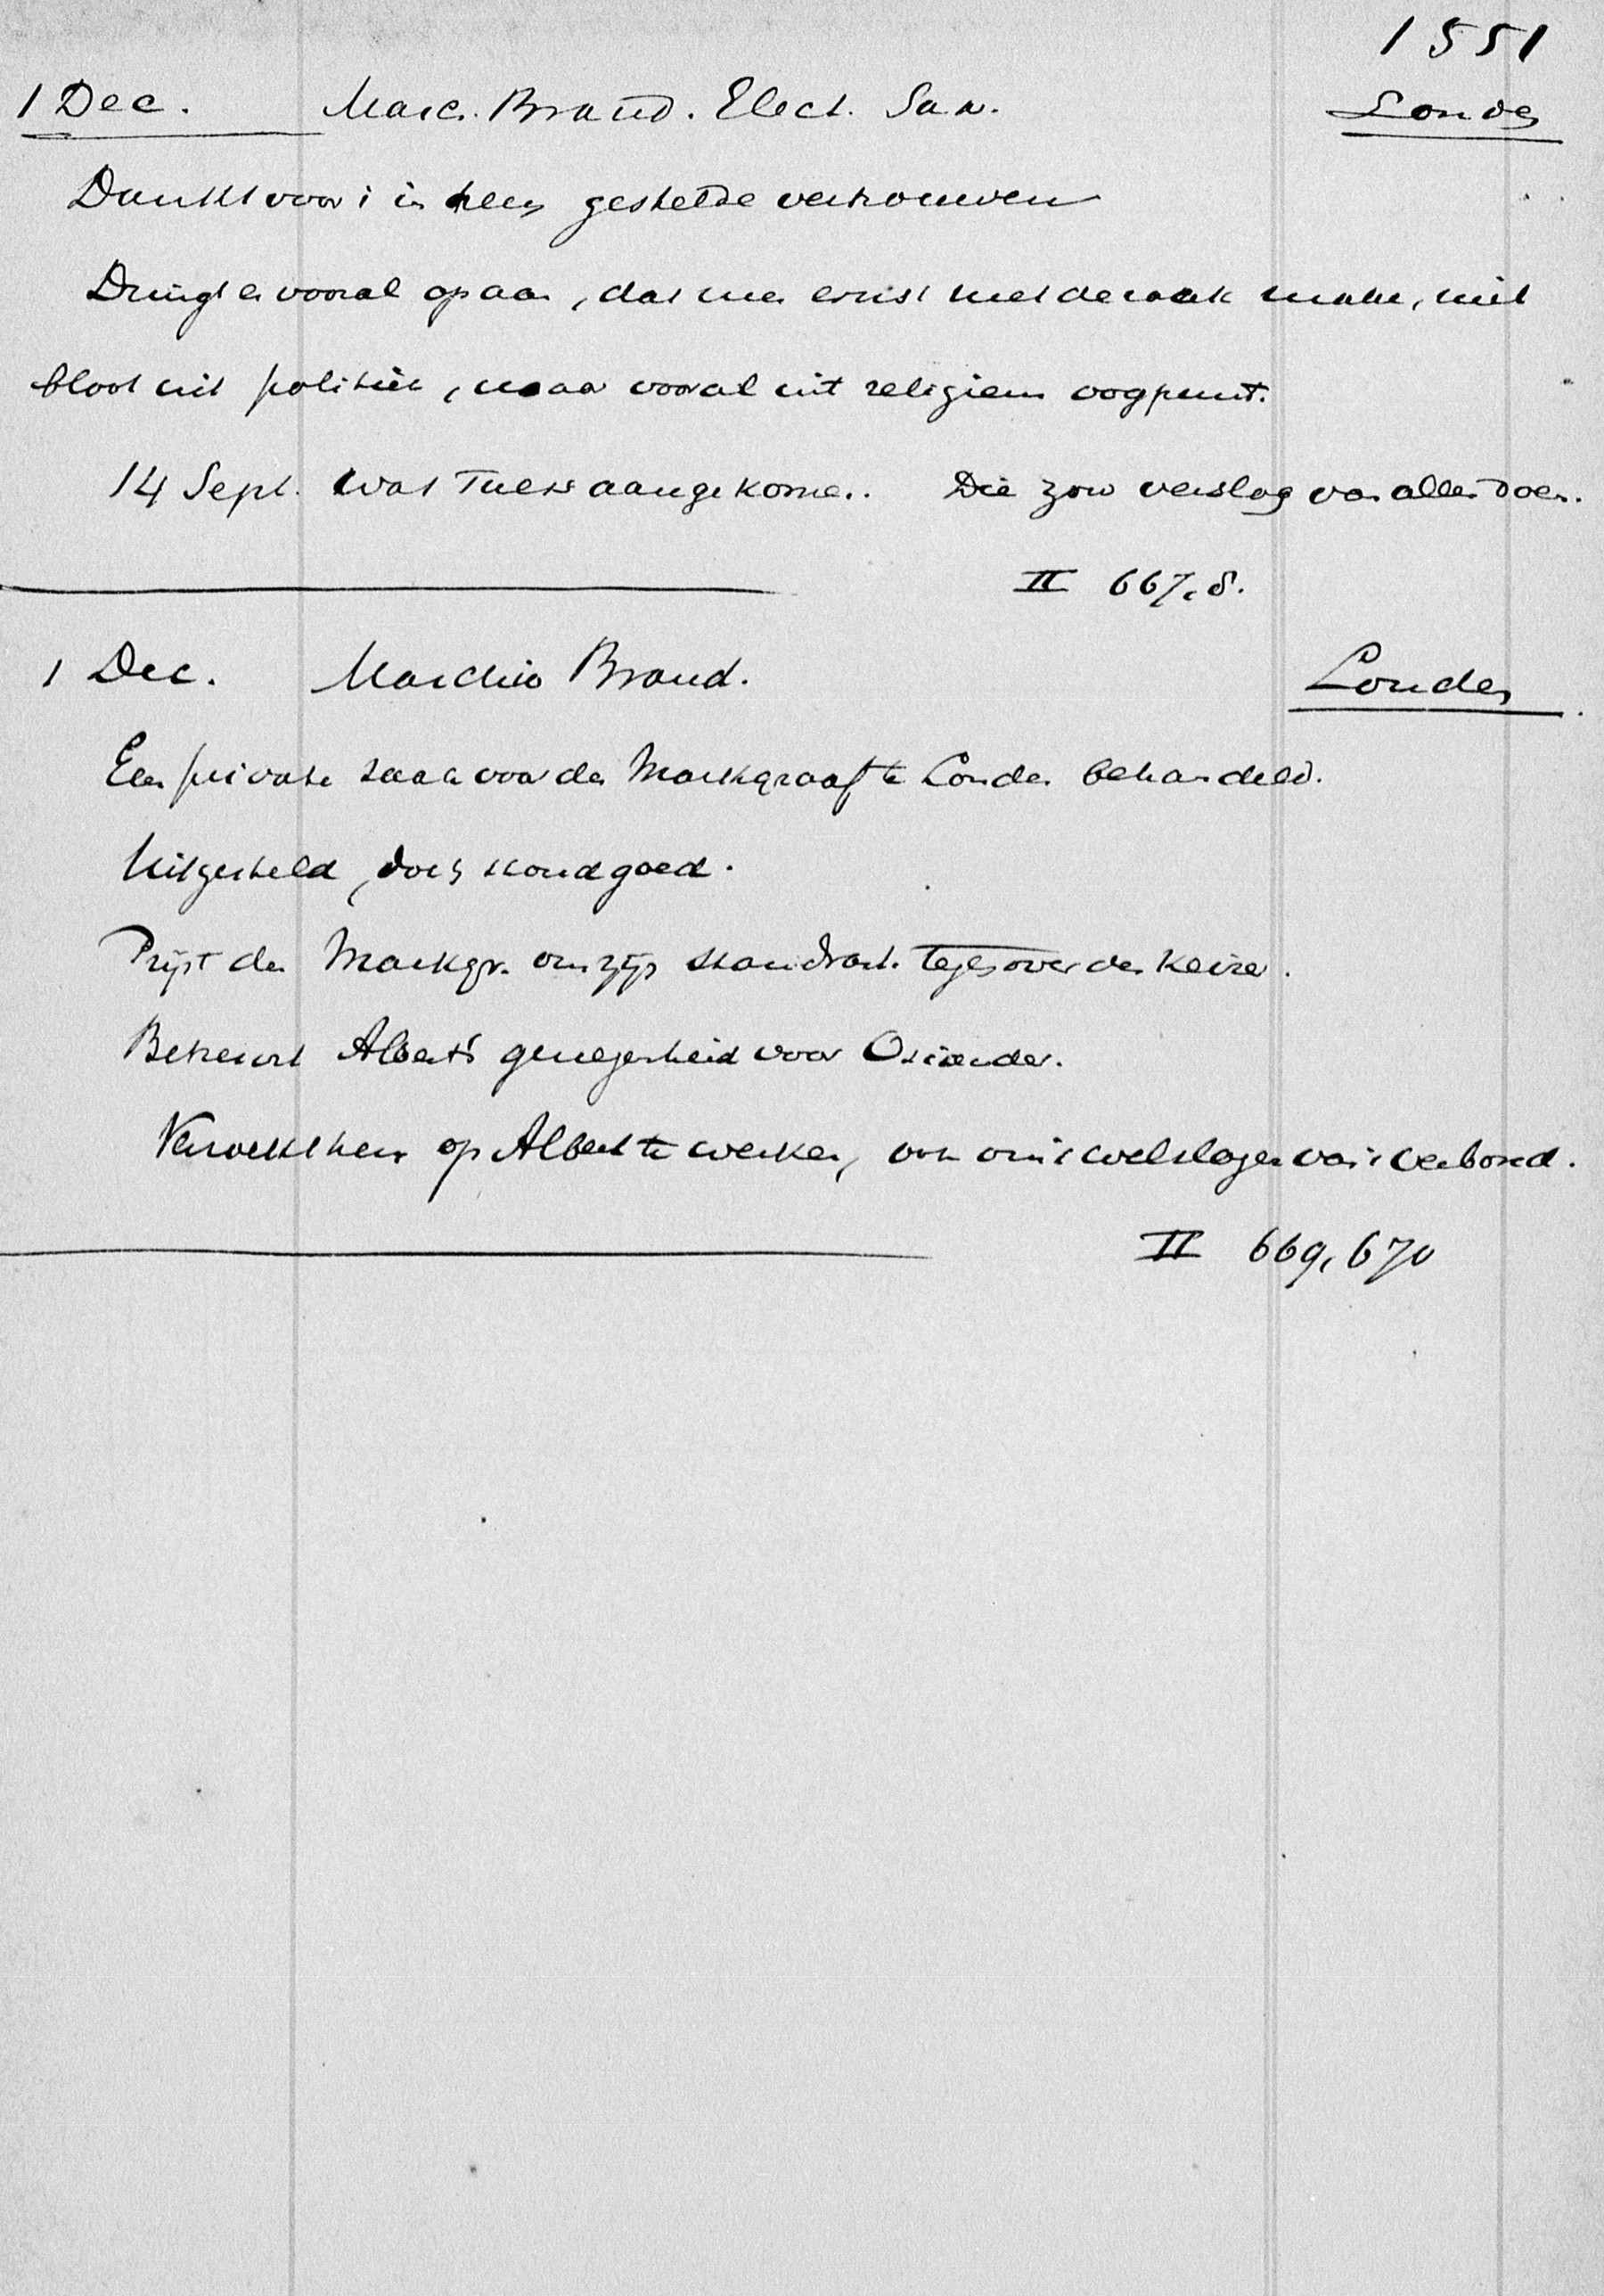 1551
1 Dec. Marc. Brand. Elect. Sax. Londen
Dankt voor 't in hem gestelde vertrouwen
Dringt er vooral op aan, dat men ernst met de zaak make, niet
bloot uit politiek, maar vooral uit religieus oogpunt.
14 Sept. was aangekomen. Die zou verslag van alles doen.
II 667,8.
1 Dec. Marchio Brand. Londen
Een private zaak voor den Markgraaf te Londen behandeld.
Uitgesteld, doch stond goed.
Prijst den Markgr. om zijn tegenover den Keizer.
Betreurt Albert's genegenheid voor Osiander.
Verzoekt hem op Albert te werken, om 't welslagen van 't verbond.
II 669,670